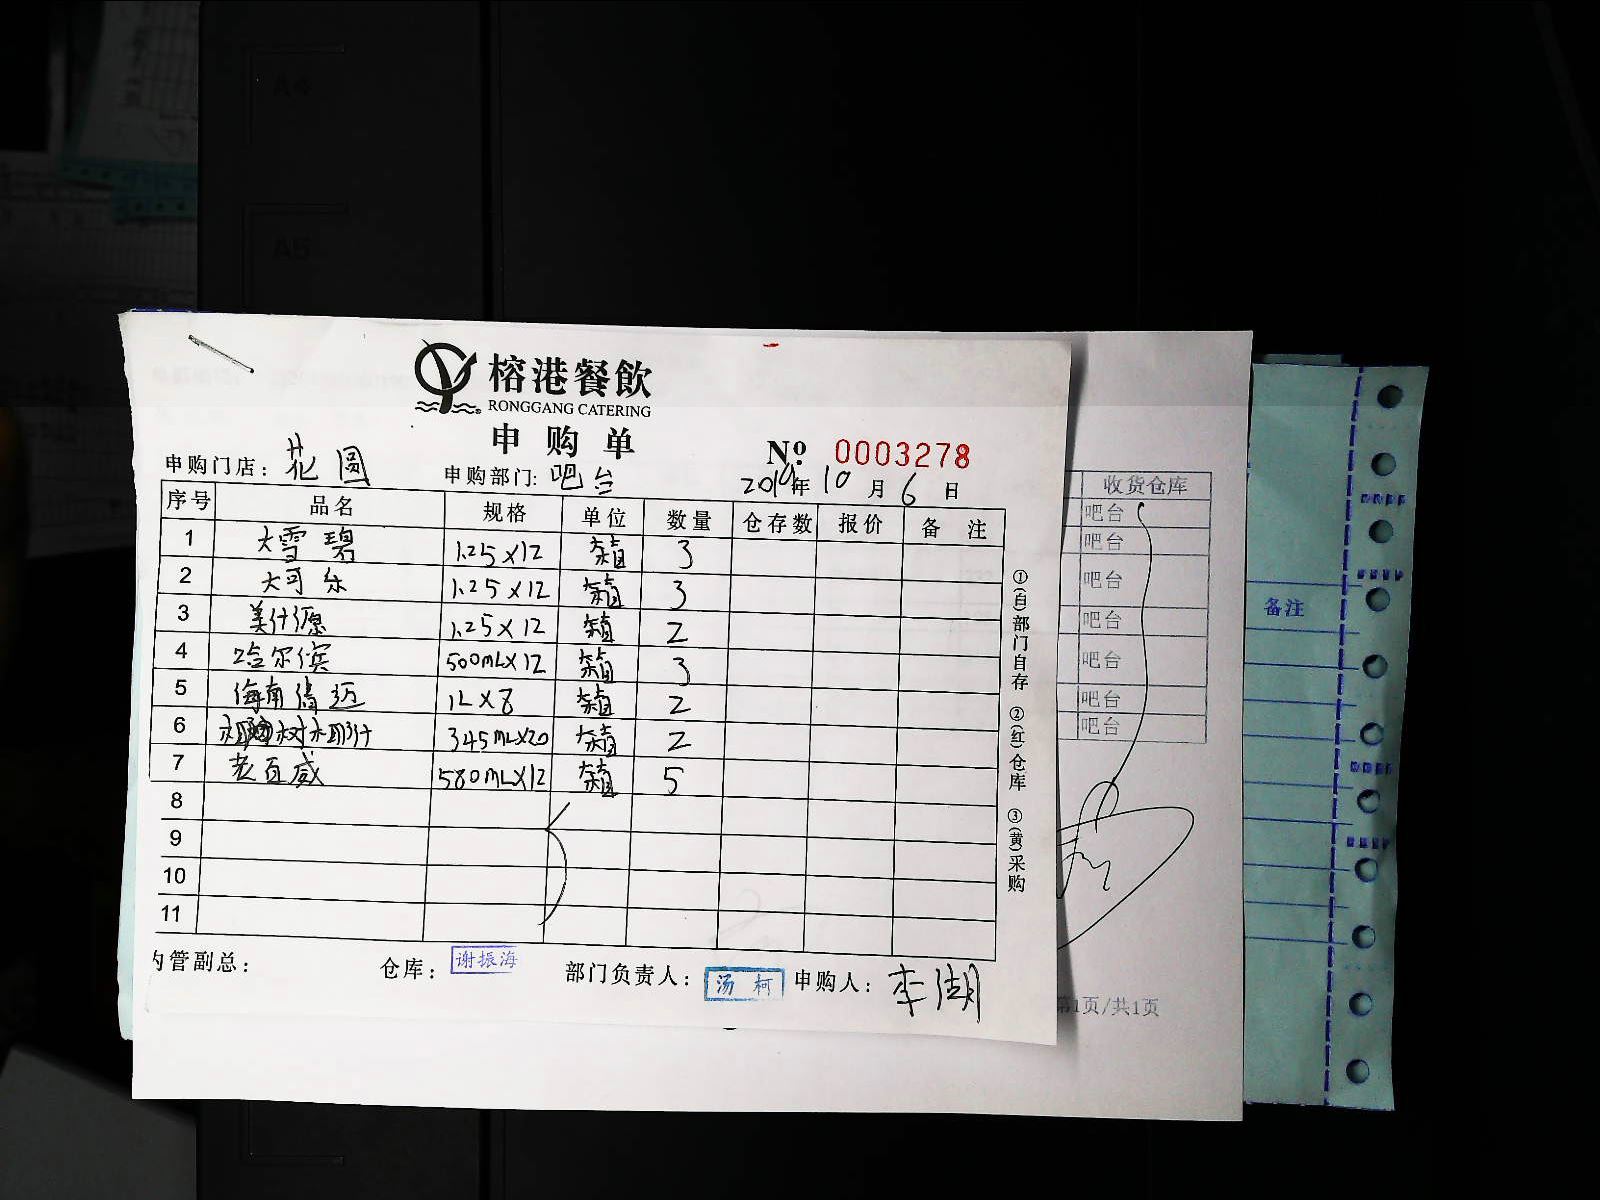 A4
A5
榕港餐飲
RONGGANG CATERING
申购单
№ 0003278
申购门店：花圆 申购部门：吧台 2019年10月6日
序号 品名 规格 单位 数量 仓存数 报价 备注
1 大雪碧 1.25×12 箱 3
2 大可乐 1.25×12 箱 3
3 美汁源 1.25×12 箱 2
4 哈尔滨 500mL×12 箱 3
5 海南 1L×8 箱 2
6 树椰汁 345mL×20 箱 2
7 老百威 580mL×12 箱 5
8
9
10
11
内管副总： 仓库：谢振海 部门负责人：汤柯 申购人：李湖
①(白)部门自存 ②(红)仓库 ③(黄)采购
收货仓库
吧台
吧台
吧台
吧台
吧台
吧台
吧台
第1页/共1页
备注